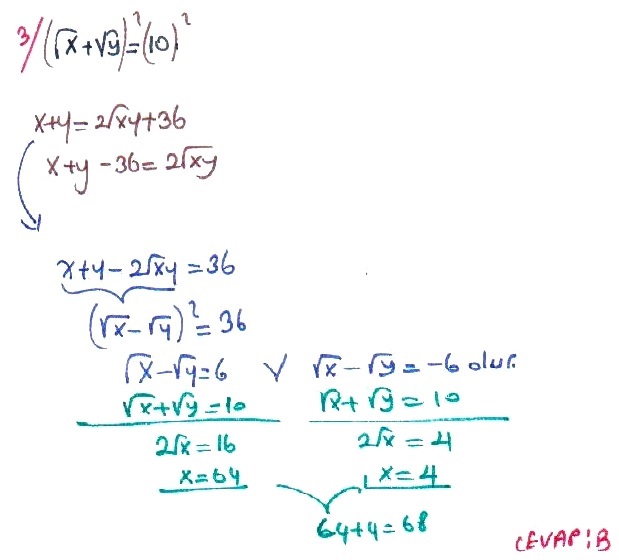 3/ (√x+√y)²=(10)²
x+y=2√xy+36
x+y-36=2√xy
x+y-2√xy=36
(√x-√y)²=36
√x-√y=6 ∨ √x-√y=-6 olur.
√x+√y=10 √x+√y=10
2√x=16 2√x=4
x=64 x=4
64+4=68
CEVAP:B